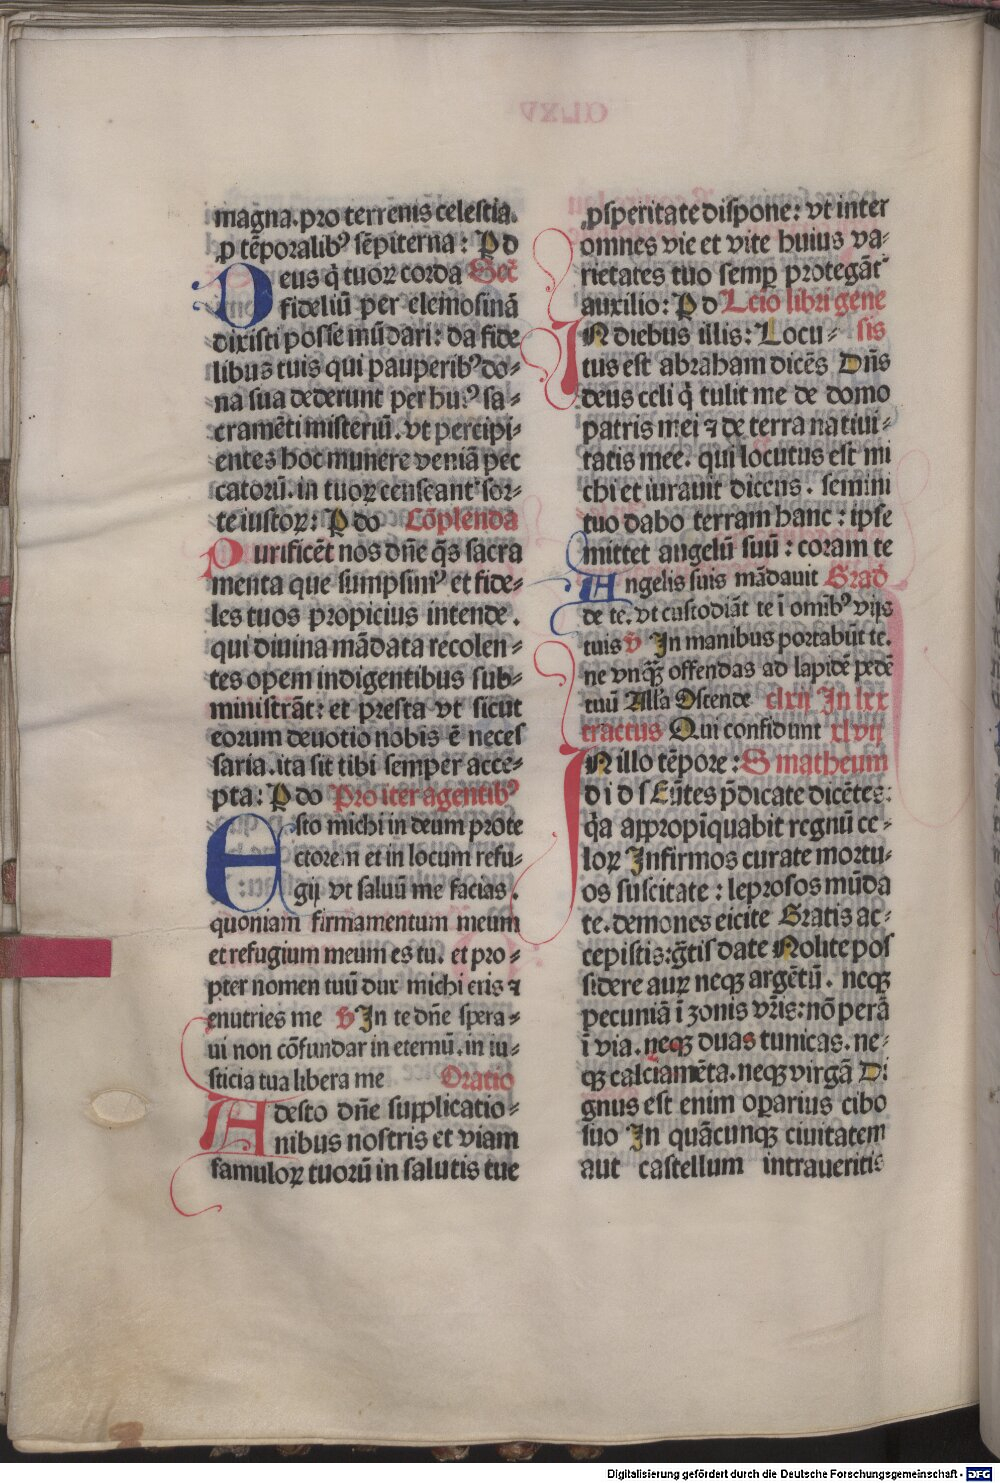 magna. pro terrenis celestia.
ꝑ tẽporalibꝰ sẽpiterna: P d
Deus q̇ tuoꝝ corda Secr̃
fideliũ per elemosinã
dixisti posse mũdari: da fide
libus tuis qui pauperibꝰ do⸗
na sua dederunt per huiꝰ sa⸗
cramẽti misteriũ. vt percipi⸗
entes hoc munere veniã pec
catoꝝ. in tuoꝝ censeant᷑ sor⸗
te iustoꝝ: P do Cõplenda
Purificẽt nos dñe q̃s sacra
menta que sumpsimꝰ et fide⸗
les tuos propicius intende.
qui diuina mãdata recolen⸗
tes opem indigentibus sub⸗
ministrãt: et presta vt sicut
eorum deuotio nobis ẽ neces
saria. ita sit tibi semper acce⸗
pta: P do Pro iter agentibꝰ
Esto michi in deum prote
ctorem et in locum refu⸗
gij vt saluũ me facias.
quoniam firmamentum meum
et refugium meum es tu. et pro⸗
pter nomen tuũ dux michi eris ⁊
enutries me V In te dñe spera⸗
ui non cõfundar in eternũ. in iu⸗
sticia tua libera me Oratio
Adesto dñe supplicatio⸗
nibus nostris et viam
famuloꝝ tuorũ in salutis tue
ꝓsperitate dispone: vt inter
omnes vie et vite huius va⸗
rietates tuo semꝑ protegãt᷑
auxilio: P d Lcĩo libri gene
IN diebus illis: Locu⸗ sis
tus est abraham dicẽs Dñs
deus celi q̇ tulit me de domo
patris mei ⁊ de terra natiui⸗
tatis mee. qui locutus est mi
chi et iurauit dicens. semini
tuo dabo terram hanc: ipse
mittet angelũ suũ: coram te
Angelis suis mãdauit Grad̃
de te. vt custodiãt te ĩ omĩbꝰ vijs
tuis V In manibus portabũt te.
ne vnqꝫ offendas ad lapidẽ pedẽ
tuũ Alla Ostende clxij In lxx
tractus Qui confidunt xlvij
IN illo tẽpore: S matheum
d i d s Eũtes p̃dicate dicẽtes:
q̇a appropĩquabit regnũ ce⸗
loꝝ Infirmos curate mortu⸗
os suscitate: leprosos mũda
te. demones eicite Gratis ac⸗
cepistis: g̃tis date Nolite pos
sidere auꝝ neqꝫ argẽtũ. neqꝫ
pecuniã ĩ zonis vr̃is: nõ perã
ĩ via. neqꝫ duas tunicas. ne⸗
qꝫ calciamẽta. neqꝫ virgã Di
gnus est enim oꝑarius cibo
suo In quãcunqꝫ ciuitatem
aut castellum intraueritis
Digitalisierung gefördert durch die Deutsche Forschungsgemeinschaft - DFG